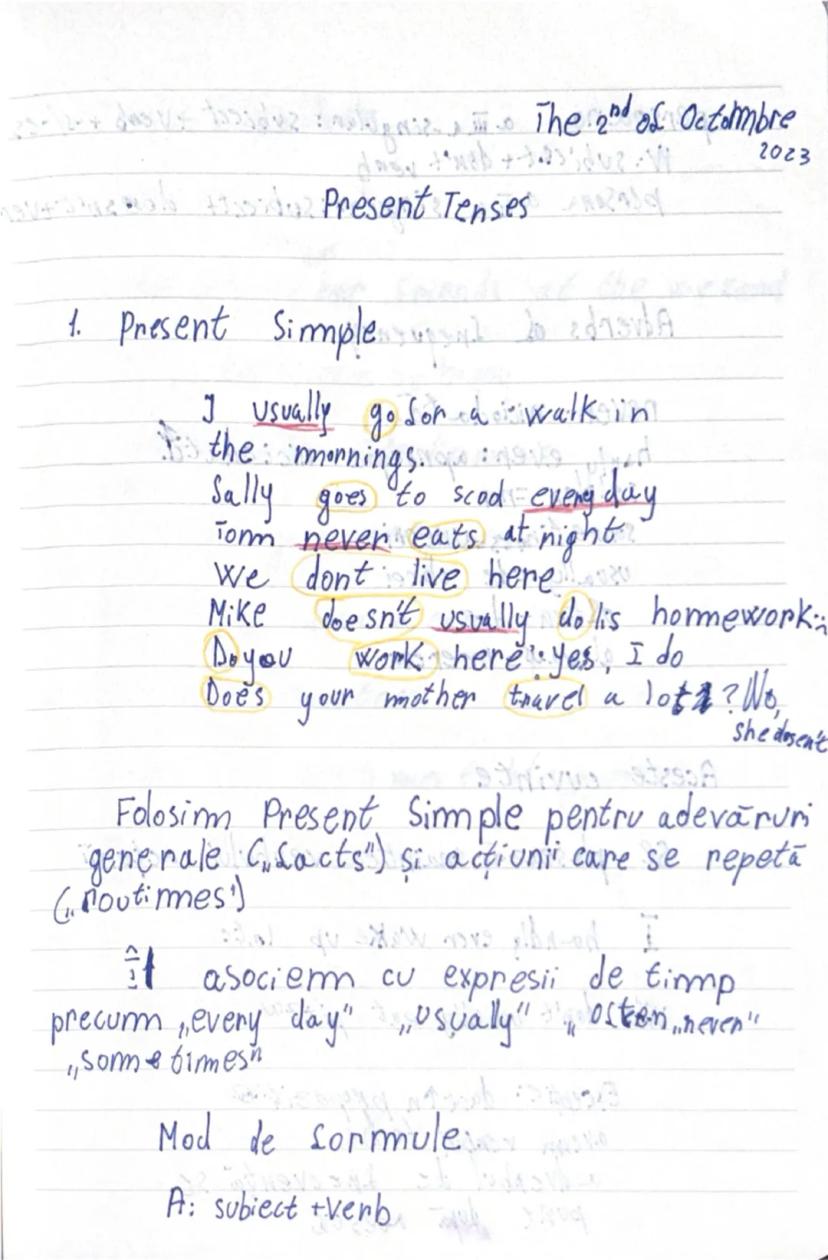 The 2nd of Octombre
2023
Present Tenses
1. Present Simple
I usually go for a walk in
the mornings.
Sally goes to scool every day
Tom never eats at night
We dont live here
Mike doesn't usually do his homework
Do you work here? Yes, I do
Does your mother travel a lot? No,
she doesn't
Folosim Present Simple pentru adevăruri
generale („facts") și acțiuni care se repetă
(„routines")
Îl asociem cu expresii de timp
precum „every day" „usually" „often „never"
„sometimes"
Mod de formule:
A: subiect + verb